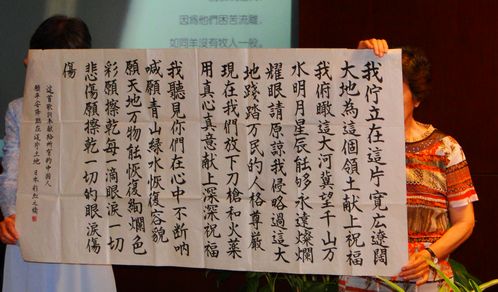 因為他們困苦流離,
如同羊沒有牧人一般。
我佇立在這片寬広遼闊
大地為這個領土献上祝福
我俯瞰這大河冀望千山万
水明月星辰能够永遠燦爛
耀眼請原諒我侵略過這大
地踐踏万民的人格尊嚴
現在我們放下刀槍和火薬
用真心真意献上深深祝福
我聽見你們在心中不断吶
喊願青山綠水恢復容貌
願天地万物能恢復絢爛色
彩願擦乾每一滴眼淚一切
悲傷願擦乾一切的眼淚傷
傷
這首歌詞奉献給所有的中国人
願平安降臨在這片土地 日本 彩虹之橋